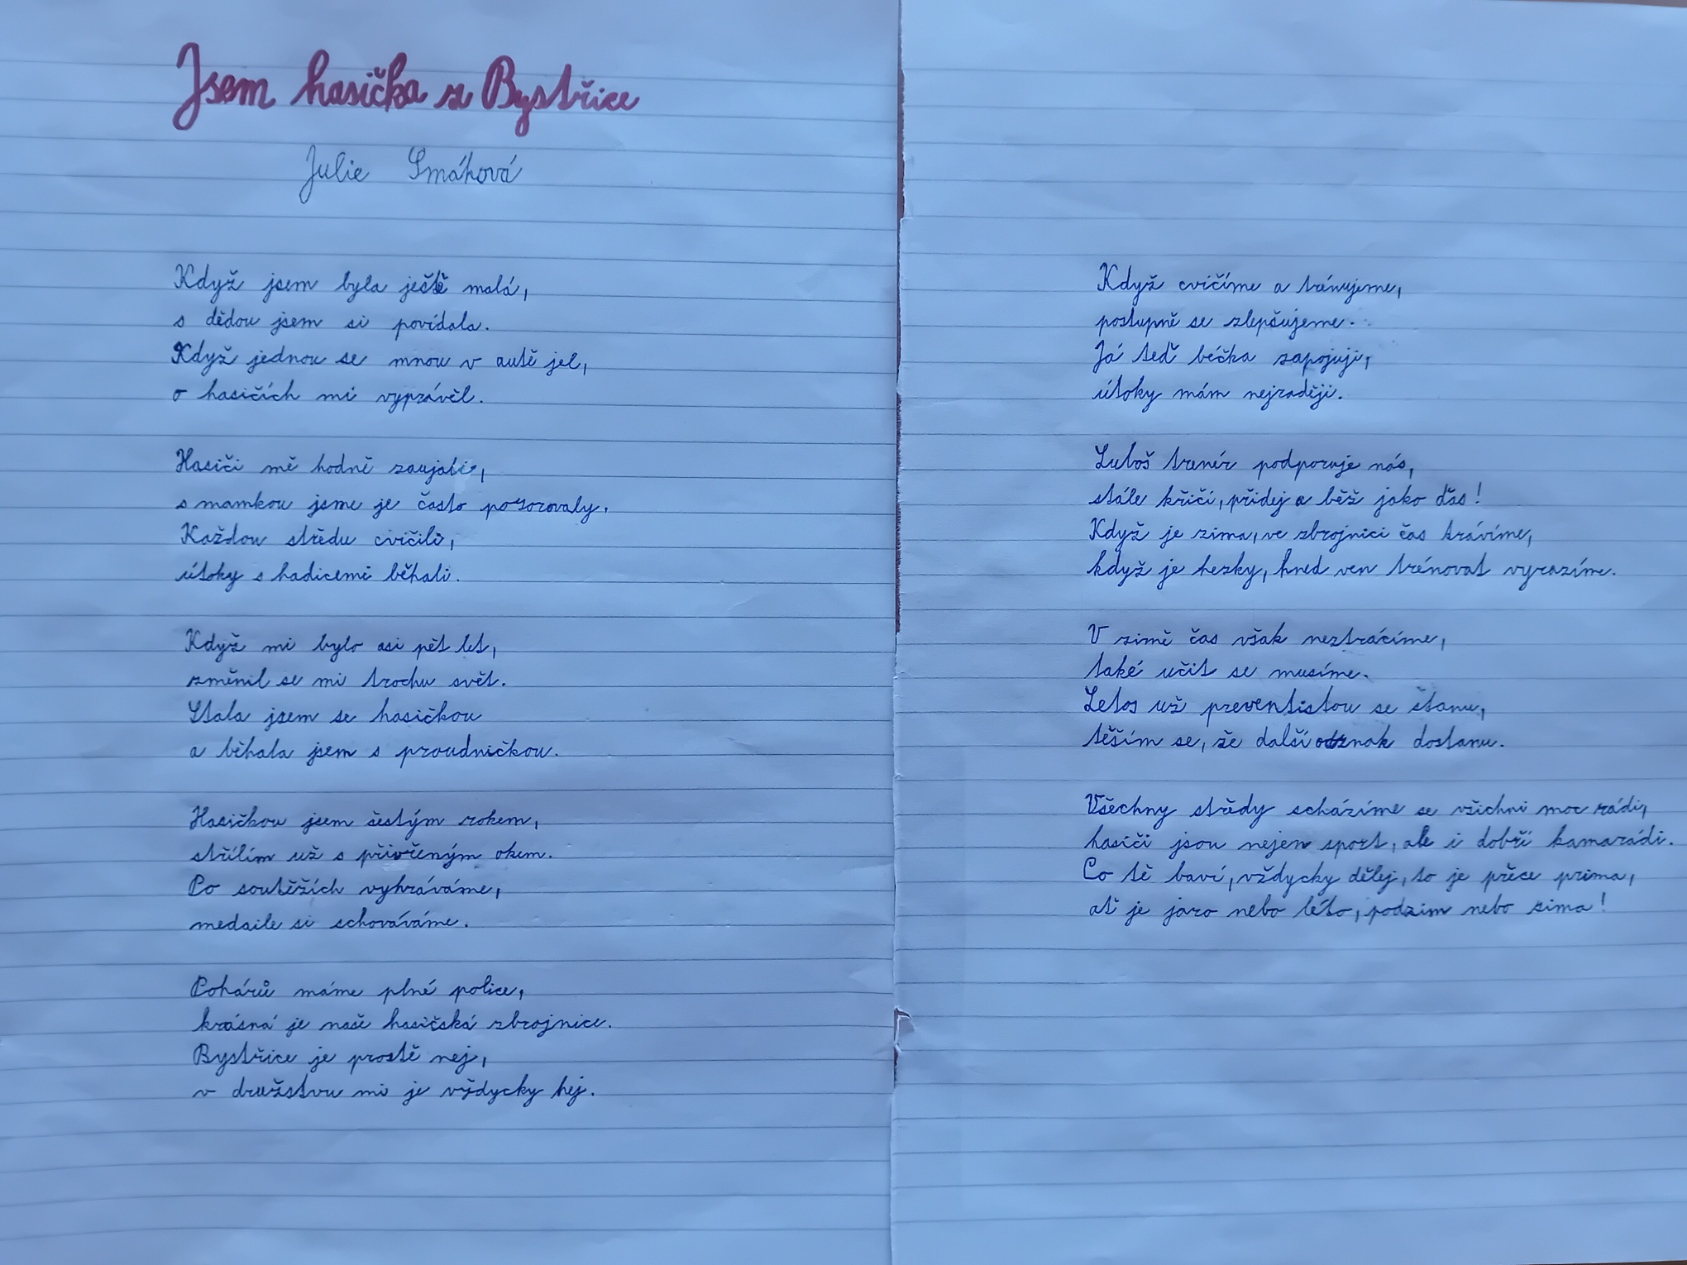 Jsem hasička z Bystřice
Julie Smáhová
Když jsem byla ještě malá,
s dědou jsem si povídala.
Když jednou se mnou v autě jel,
o hasičích mi vyprávěl.
Hasiči mě hodně zaujali,
s mamkou jsme je často pozorovaly.
Každou středu cvičili,
útoky s hadicemi běhali.
Když mi bylo asi pět let,
změnil se mi trochu svět.
Stala jsem se hasičkou
a běhala jsem s proudničkou.
Hasičkou jsem šestým rokem,
střílím už s přivřeným okem.
Po soutěžích vyhráváme,
medaile si schováváme.
Pohárů máme plné police,
krásná je naše hasičská zbrojnice.
Bystřice je prostě nej,
v družstvu mi je vždycky hej.
Když cvičíme a trénujeme,
postupně se zlepšujeme.
Já teď béčka zapojuji,
útoky mám nejraději.
Luboš trenér podporuje nás,
stále křičí, přidej a běž jako ďas!
Když je zima, ve zbrojnici čas trávíme,
když je hezky, hned ven trénovat vyrazíme.
V zimě čas však neztrácíme,
také učit se musíme.
Letos už preventistou se stanu,
těším se, že další odznak dostanu.
Všechny středy scházíme se všichni moc rádi,
hasiči jsou nejen sport, ale i dobří kamarádi.
Co tě baví, vždycky dělej, to je přece prima,
ať je jaro nebo léto, podzim nebo zima!